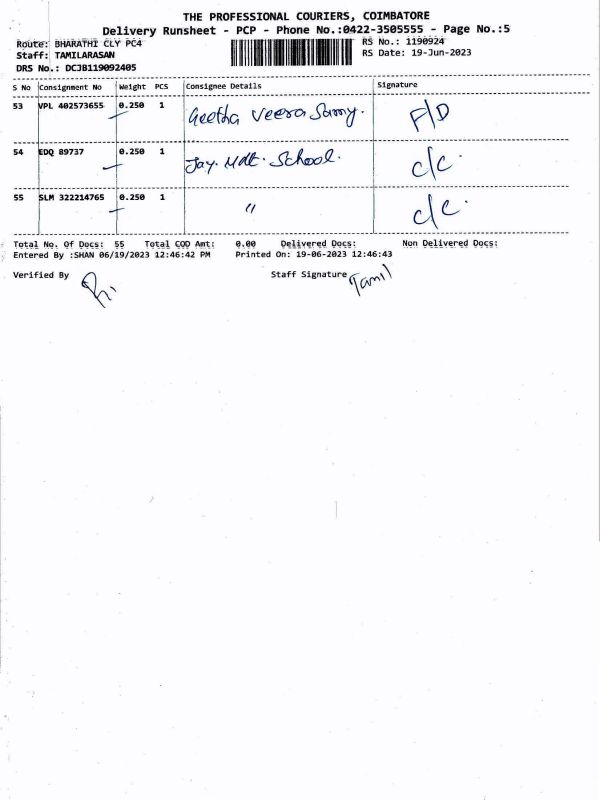 THE PROFESSIONAL COURIERS, COIMBATORE
Delivery Runsheet - PCP - Phone No.:0422-3505555 - Page No.:5
Route: BHARATHI CLY PC4 RS No.: 1190924
Staff: TAMILARASAN RS Date: 19-Jun-2023
DRS No.: DCJB119092405
S No Consignment No Weight PCS Consignee Details Signature
53 VPL 402573655 0.250 1 Geetha Veera Samy. F/D
54 EDQ 89737 0.250 1 Jay. Mdt. School. c/c.
55 SLM 322214765 0.250 1 " c/c.
Total No. Of Docs: 55 Total COD Amt: 0.00 Delivered Docs: Non Delivered Docs:
Entered By :SHAN 06/19/2023 12:46:42 PM Printed On: 19-06-2023 12:46:43
Verified By Staff Signature Tamil